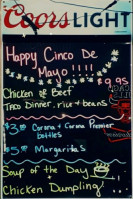 Coors LIGHT
Happy Cinco De
Mayo!!!!
9.95
Chicken or Beef
Taco Dinner, rice & beans
$3.50 Corona & Corona Premier
bottles
$5 Margarita's
Soup of the Day
Chicken Dumpling